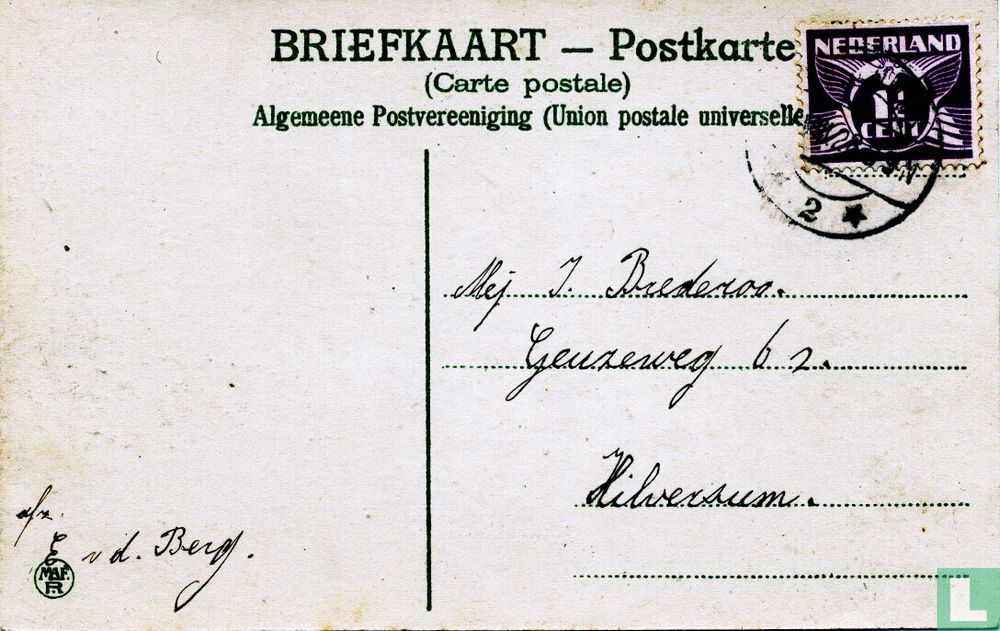 BRIEFKAART — Postkarte
(Carte postale)
Algemeene Postvereeniging (Union postale universelle
NEDERLAND
1½
CENT
2
Mej J. Brederoo.
Geuzeweg 62.
Hilversum.
afz.
E v d. Berg.
MAF.
R
L